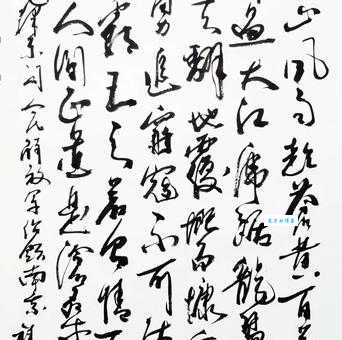 山风雨起苍黄百
过大江虎踞龍盤
天翻地覆慨而慷
勇追窮寇不可沽
霸王天若有情天
人间正道是滄桑
澤东词人民解放军佔领南京